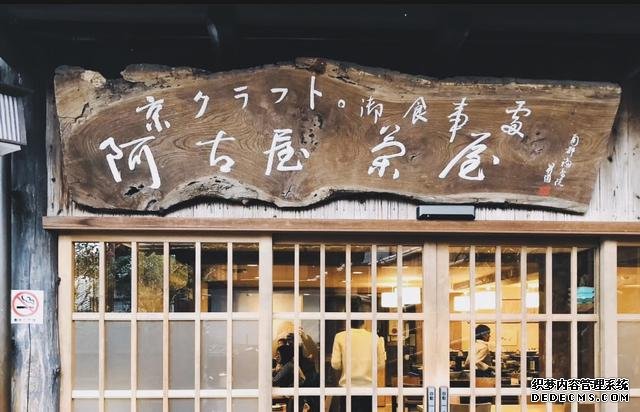 京クラフト。御食事處
阿古屋茶屋
织梦内容管理系统
DEDECMS.COM